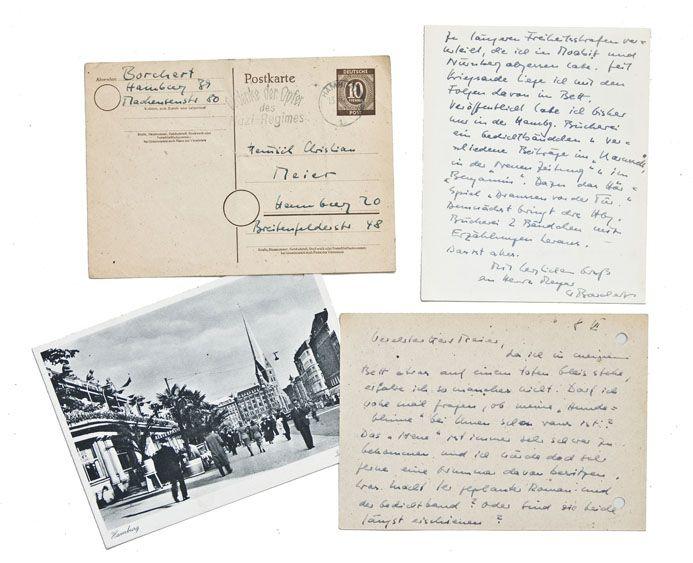 Absender: Borchert
Hamburg 39
Mackensenstr 80
Postkarte
DEUTSCHE
10
PFENNIG
POST
HAMBURG
Gedenke der Opfer
des
Nazi-Regimes
Heinrich Christian
Meier
Hamburg 20
Breitenfelderstr 48
zu längeren Freiheitsstrafen ver-
urteilt, die ich in Moabit und
Nürnberg abgesessen habe. Seit
Kriegsende liege ich mit den
Folgen davon im Bett.
Veröffentlicht habe ich bisher
nur in der Hambg. Bücherei
ein Gedichtbändchen u ver-
schiedene Beiträge im
in der „Neuen Zeitung" u im
„Benjamin". Dazu das Hör-
spiel „Draussen vor der Tür."
Demnächst bringt die Hbg.
Bücherei 2 Bändchen mit
Erzählungen heraus.
Das ist aber.
Mit herzlichem Gruß
W Borchert
Hamburg
8 VI
Verehrter Herr Meier,
da ich in meinem
Bett aber auf einem toten Gleis stehe,
erfahre ich so manches nicht. Darf ich
wohl mal fragen, ob meine „Hunde-
blume" bei Ihnen schon raus ist?
Das „Neue" ist immer sehr schwer zu
bekommen und ich würde doch sehr
gerne eine Nummer davon besitzen.
Was macht Ihr geplanter Roman und
der Gedichtband? Oder sind sie beide
längst erschienen?